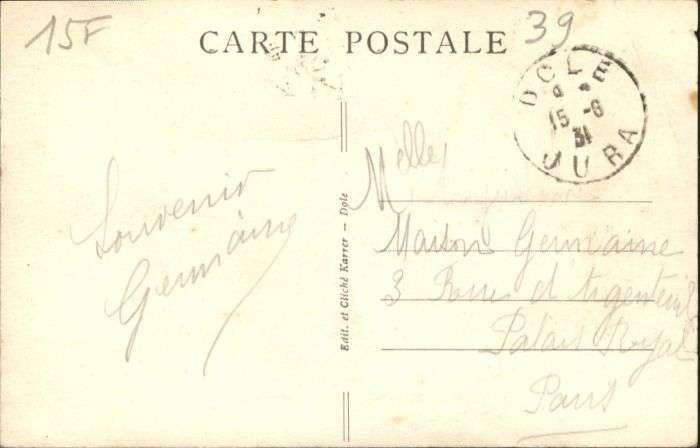 15F
39
CARTE POSTALE
DOLE
15 -6
31
JURA
Souvenir
Germaine
Edit. et Cliché Karrer — Dole
Melle
Maison Germaine
3 Rue d'Argenteuil
Palais Royal
Paris